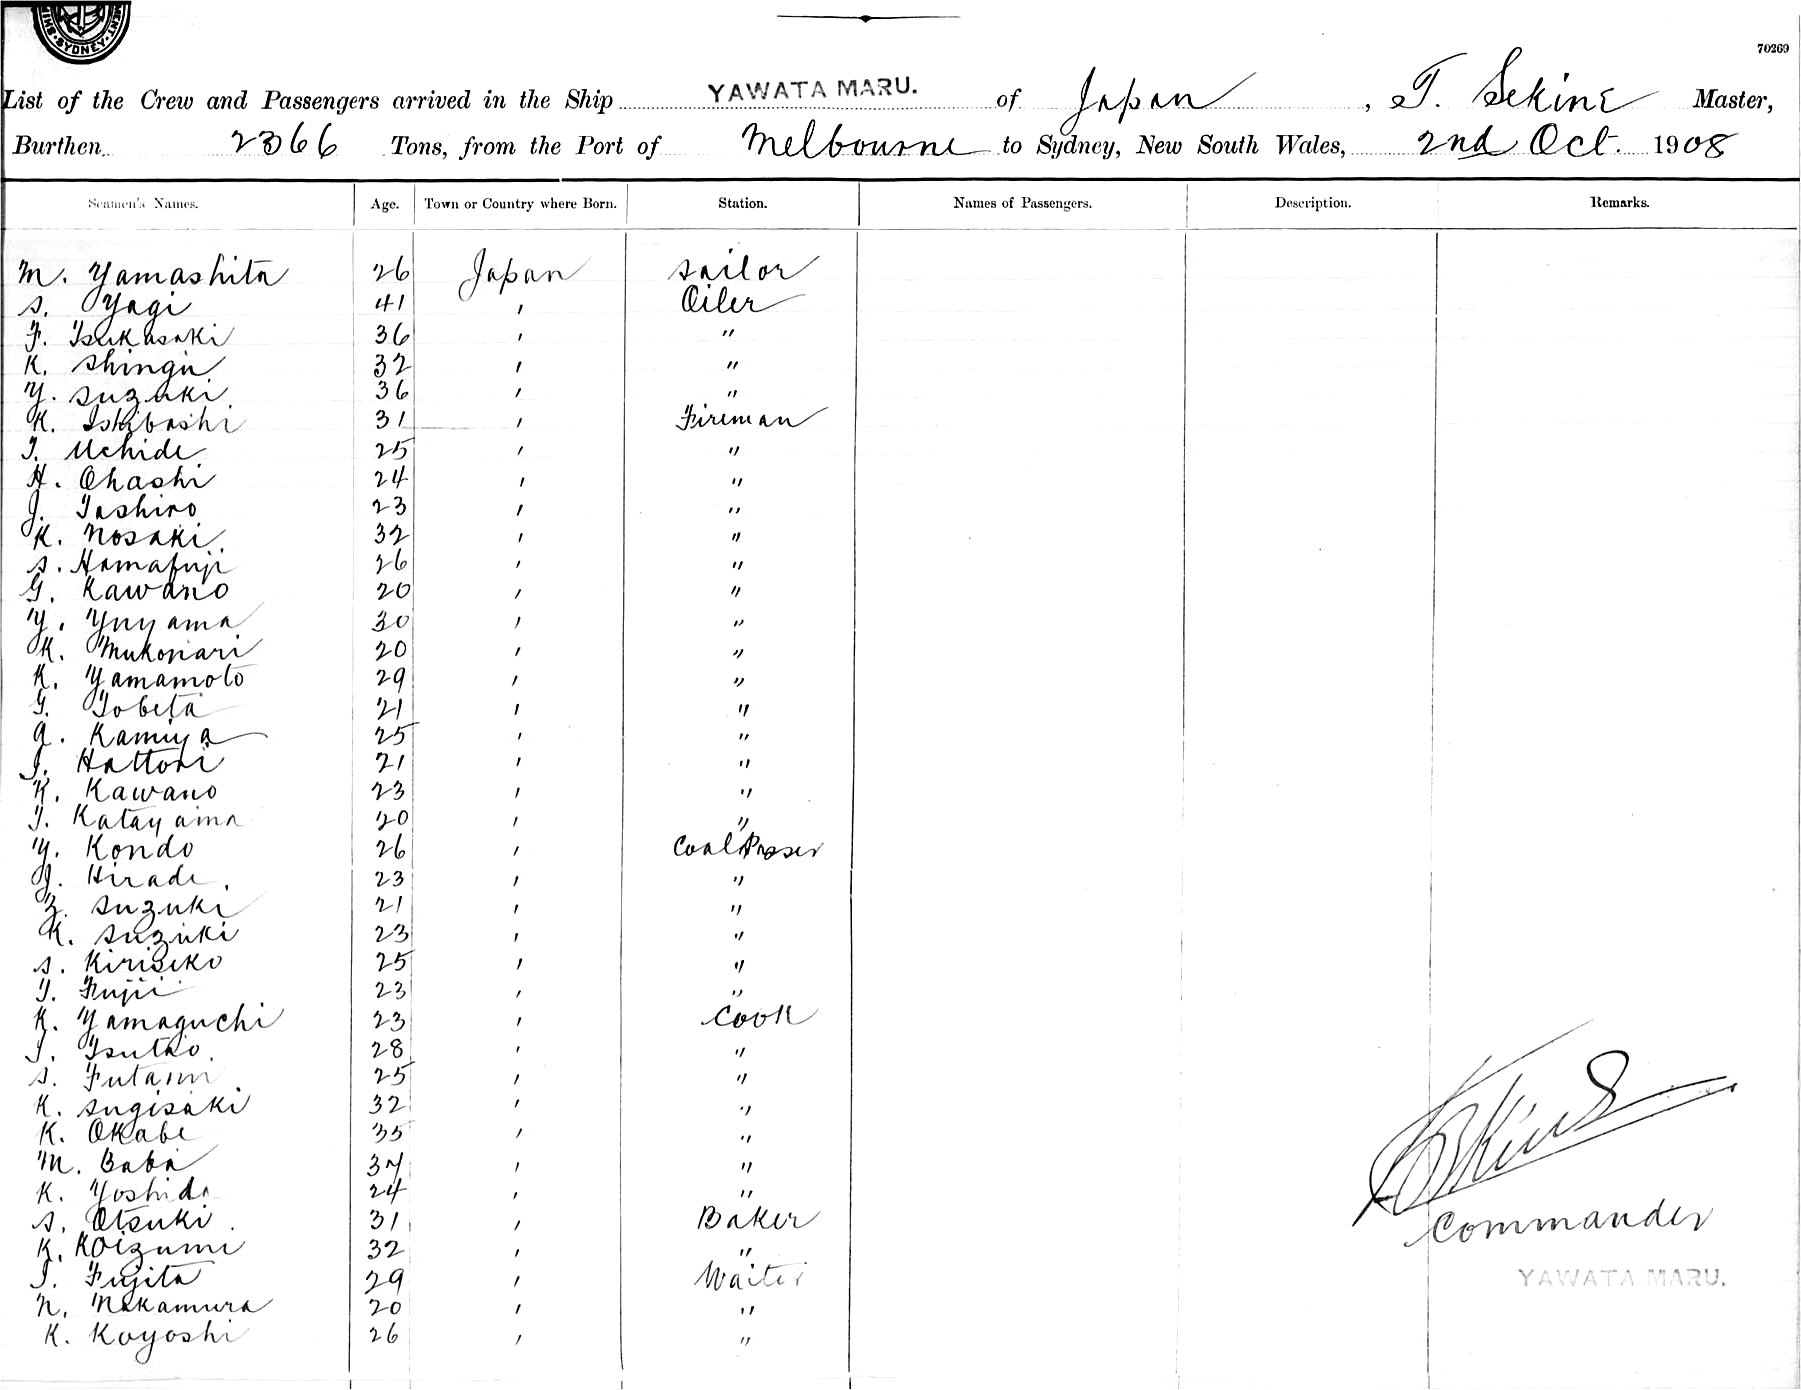 SYDNEY
70269
List of the Crew and Passengers arrived in the Ship YAWATA MARU. of Japan, T. Sekine Master,
Burthen 2366 Tons, from the Port of Melbourne to Sydney, New South Wales, 2nd Oct. 1908
Seamen's Names. Age. Town or Country where Born. Station. Names of Passengers. Description. Remarks.
M. Yamashita 26 Japan Sailor
S. Yagi 41 ' Oiler
F. Tsukasaki 36 ' "
K. Shingu 32 ' "
Y. Suzuki 36 ' "
K. Ishibashi 31 ' Fireman
T. Uchide 25 ' "
H. Ohashi 24 ' "
J. Tashiro 23 ' "
K. Nosaki 32 ' "
S. Hamafuji 26 ' "
G. Kawano 20 ' "
Y. Yuyama 30 ' "
K. Mukonari 20 ' "
K. Yamamoto 29 ' "
G. Tobeta 21 ' "
A. Kamiya 25 ' "
I. Hattori 21 ' "
K. Kawano 23 ' "
T. Katayama 20 ' "
Y. Kondo 26 ' Coal Passer
J. Hirade 23 ' "
Z. Suzuki 21 ' "
K. Suzuki 23 ' "
S. Kirisiko 25 ' "
T. Fujii 23 ' "
K. Yamaguchi 23 ' Cook
I. Tsutao 28 ' "
S. Futami 25 ' "
K. Sugisaki 32 ' "
K. Okabe 35 ' "
M. Baba 37 ' "
K. Yoshida 24 ' "
S. Otsuki 31 ' Baker
K. Koizumi 32 ' "
I. Fujita 29 ' Waiter
N. Nakamura 20 ' "
K. Koyoshi 26 ' "
Commander
YAWATA MARU.